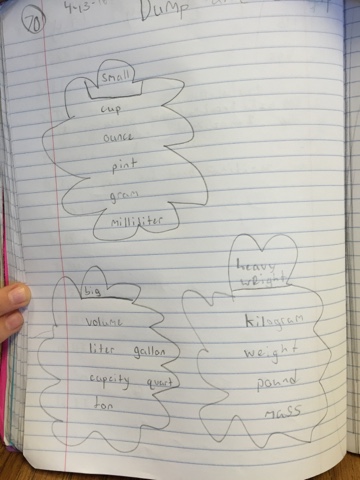 70
Dump
small
cup
ounce
pint
gram
milliliter
big
volume
liter gallon
capcity quart
ton
heavy
weight
kilogram
weight
pound
mass